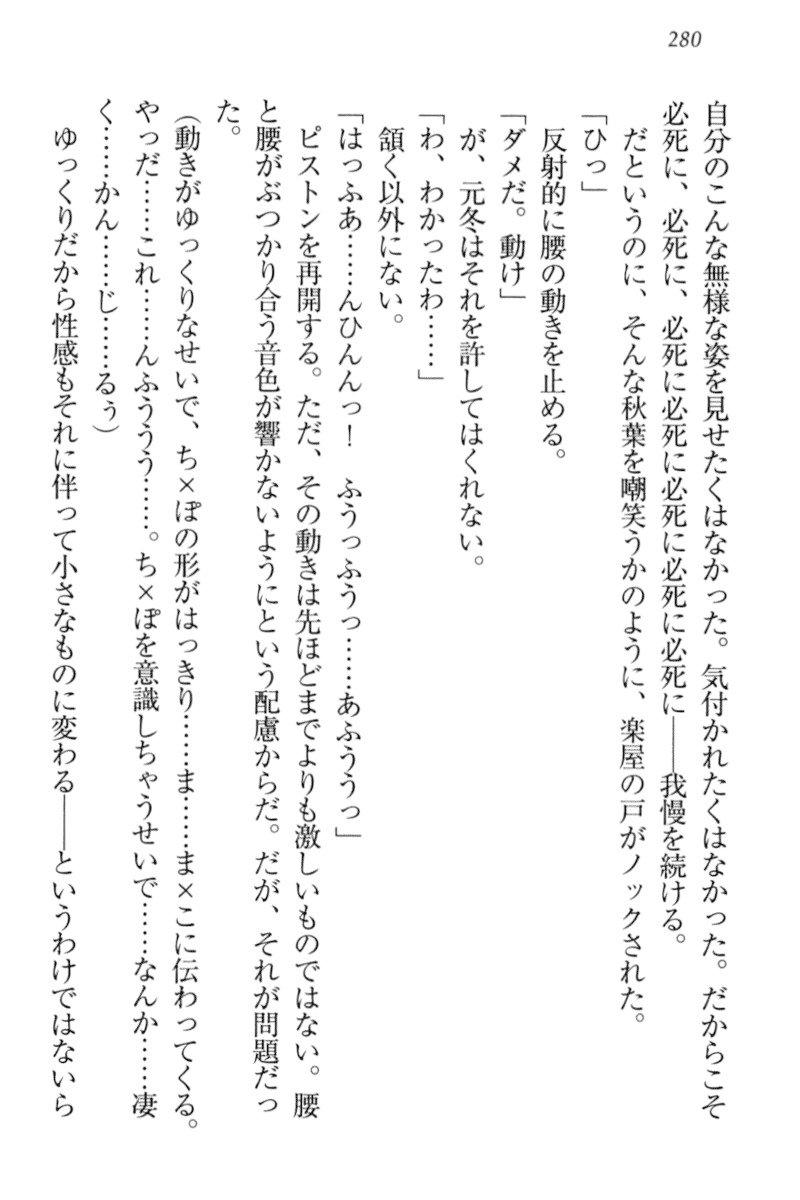 280
自分のこんな無様な姿を見せたくはなかった。気付かれたくはなかった。だからこそ
必死に、必死に、必死に必死に必死に必死に――我慢を続ける。
だというのに、そんな秋葉を嘲笑うかのように、楽屋の戸がノックされた。
「ひっ」
反射的に腰の動きを止める。
「ダメだ。動け」
が、元冬はそれを許してはくれない。
「わ、わかったわ……」
頷く以外にない。
「はっふあ……んひんんっ！　ふうっふうっ……あふううっ」
ピストンを再開する。ただ、その動きは先ほどまでよりも激しいものではない。腰
と腰がぶつかり合う音色が響かないようにという配慮からだ。だが、それが問題だっ
た。
（動きがゆっくりなせいで、ち×ぽの形がはっきり……ま……ま×こに伝わってくる。
やっだ……これ……んふううう……。ち×ぽを意識しちゃうせいで……なんか……凄
く……かん……じ……るぅ）
ゆっくりだから性感もそれに伴って小さなものに変わる――というわけではないら